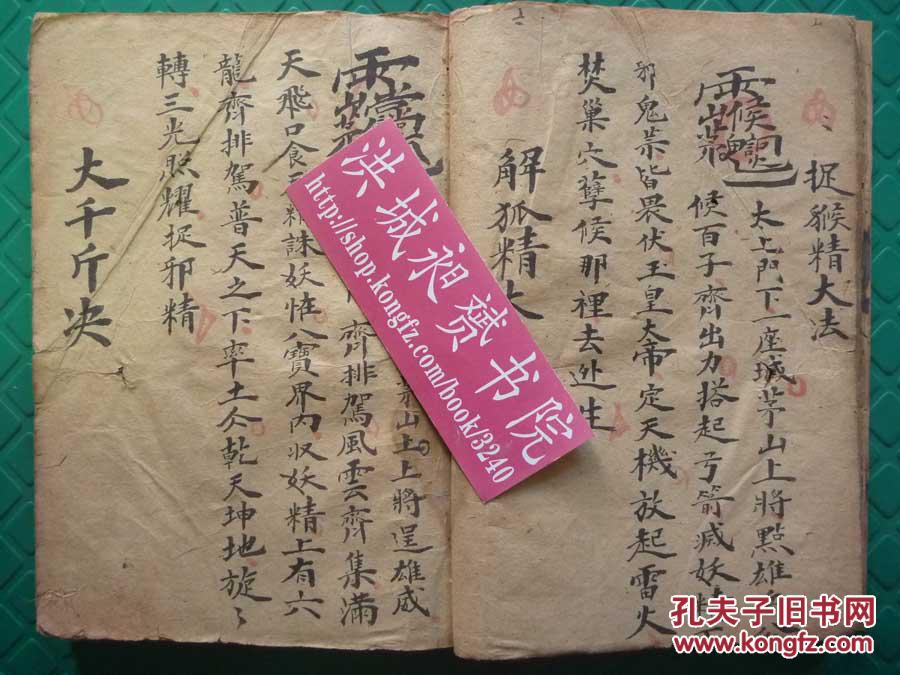 捉猴精大法
太上門下一座城茅山上將點雄兵
候百子齊出力搭起弓箭滅妖精
邪鬼祟皆畏伏王皇大帝定天機放起雷火
焚巢穴孽候那裡去迯生
解狐精
茅山上上將逞雄威
齊排駕風雲齊集滿
天飛口食
誅妖恠八寶界內収妖精上有六
龍齊排駕普天之下率土仌乾天坤地旋〻
轉三光照耀捉邪精
大千斤决
洪城昶赟书院
http://shop.kongfz.com/book/3240
孔夫子旧书网
www.kongfz.com